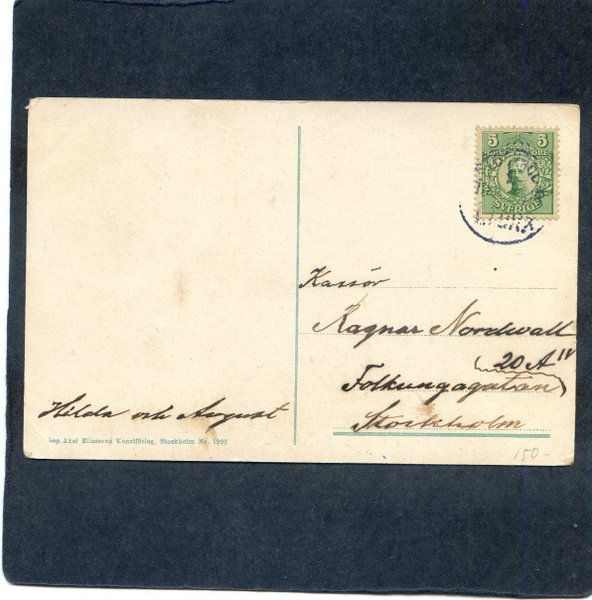 5 5
SVERIGE
Kassör
Ragnar Nordwall
20 A IV
Folkungagatan
Stockholm
Hilda och August
Imp. Axel Eliassons Konstförlag, Stockholm No. 1993
150-